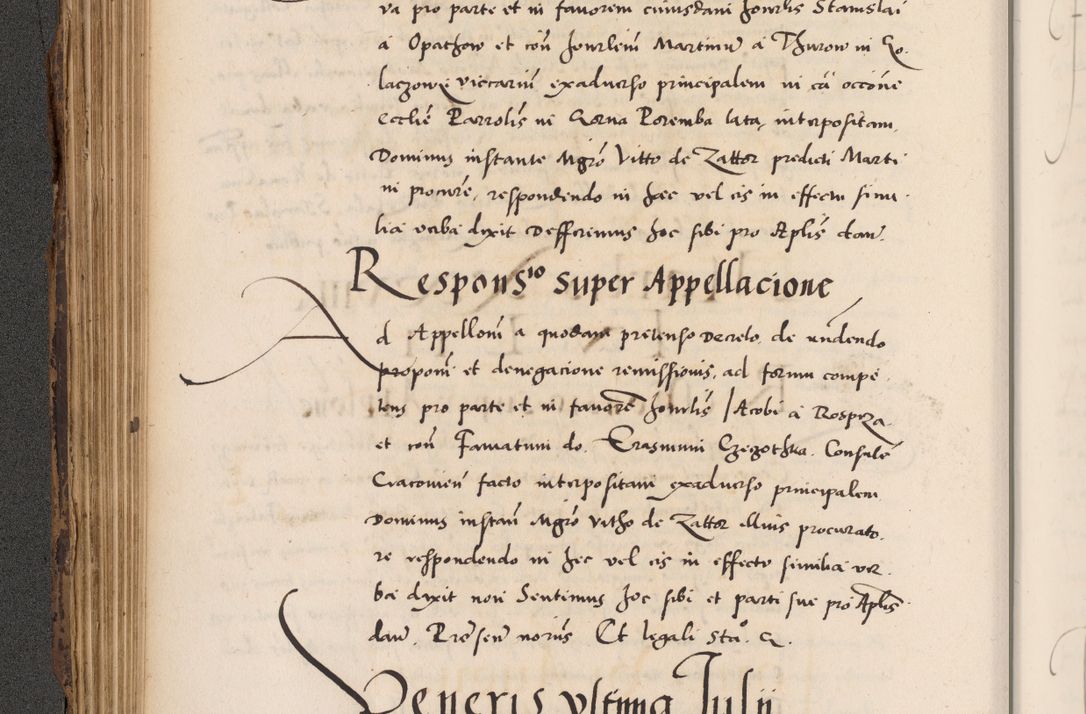 va pro parte et in favorem cuiusdam honorlis Stanislai
a Opathow et con honorlem Martinu a Thurow in Go
laczowę viccariu exadverso principalem in ca occone
Ecclie Parrolis ne Gorna Poremba lata interpositam
Dominus instante Mgro Vitto de Zattor predicti Marti
ni procure, respondendo in hec vel eis in effectu simi
lia verba dixit Defferimus hoc sibi pro Aplis dan.
Respons^io super Appellacione
Ad Appellom a quodam pretenso Decreto de undendo
propom et denegacione remissionis, ad forum compe
tens pro parte et in favore honorlis Iacobi a Rospiza
et con Famatum do. Erasmum Czeczothka Consule
Cracovien facto interpositam exadverso principalem
Dominus instan Mgro Vitho de Zattor illius procurato
re respondendo in hec vel eis in effectu similia ver
ba dixit non Sentimus hoc sibi et parti sue pro Aplis
dan. Presen noriis Et legali sta. &.
Veneris ultima Iulii